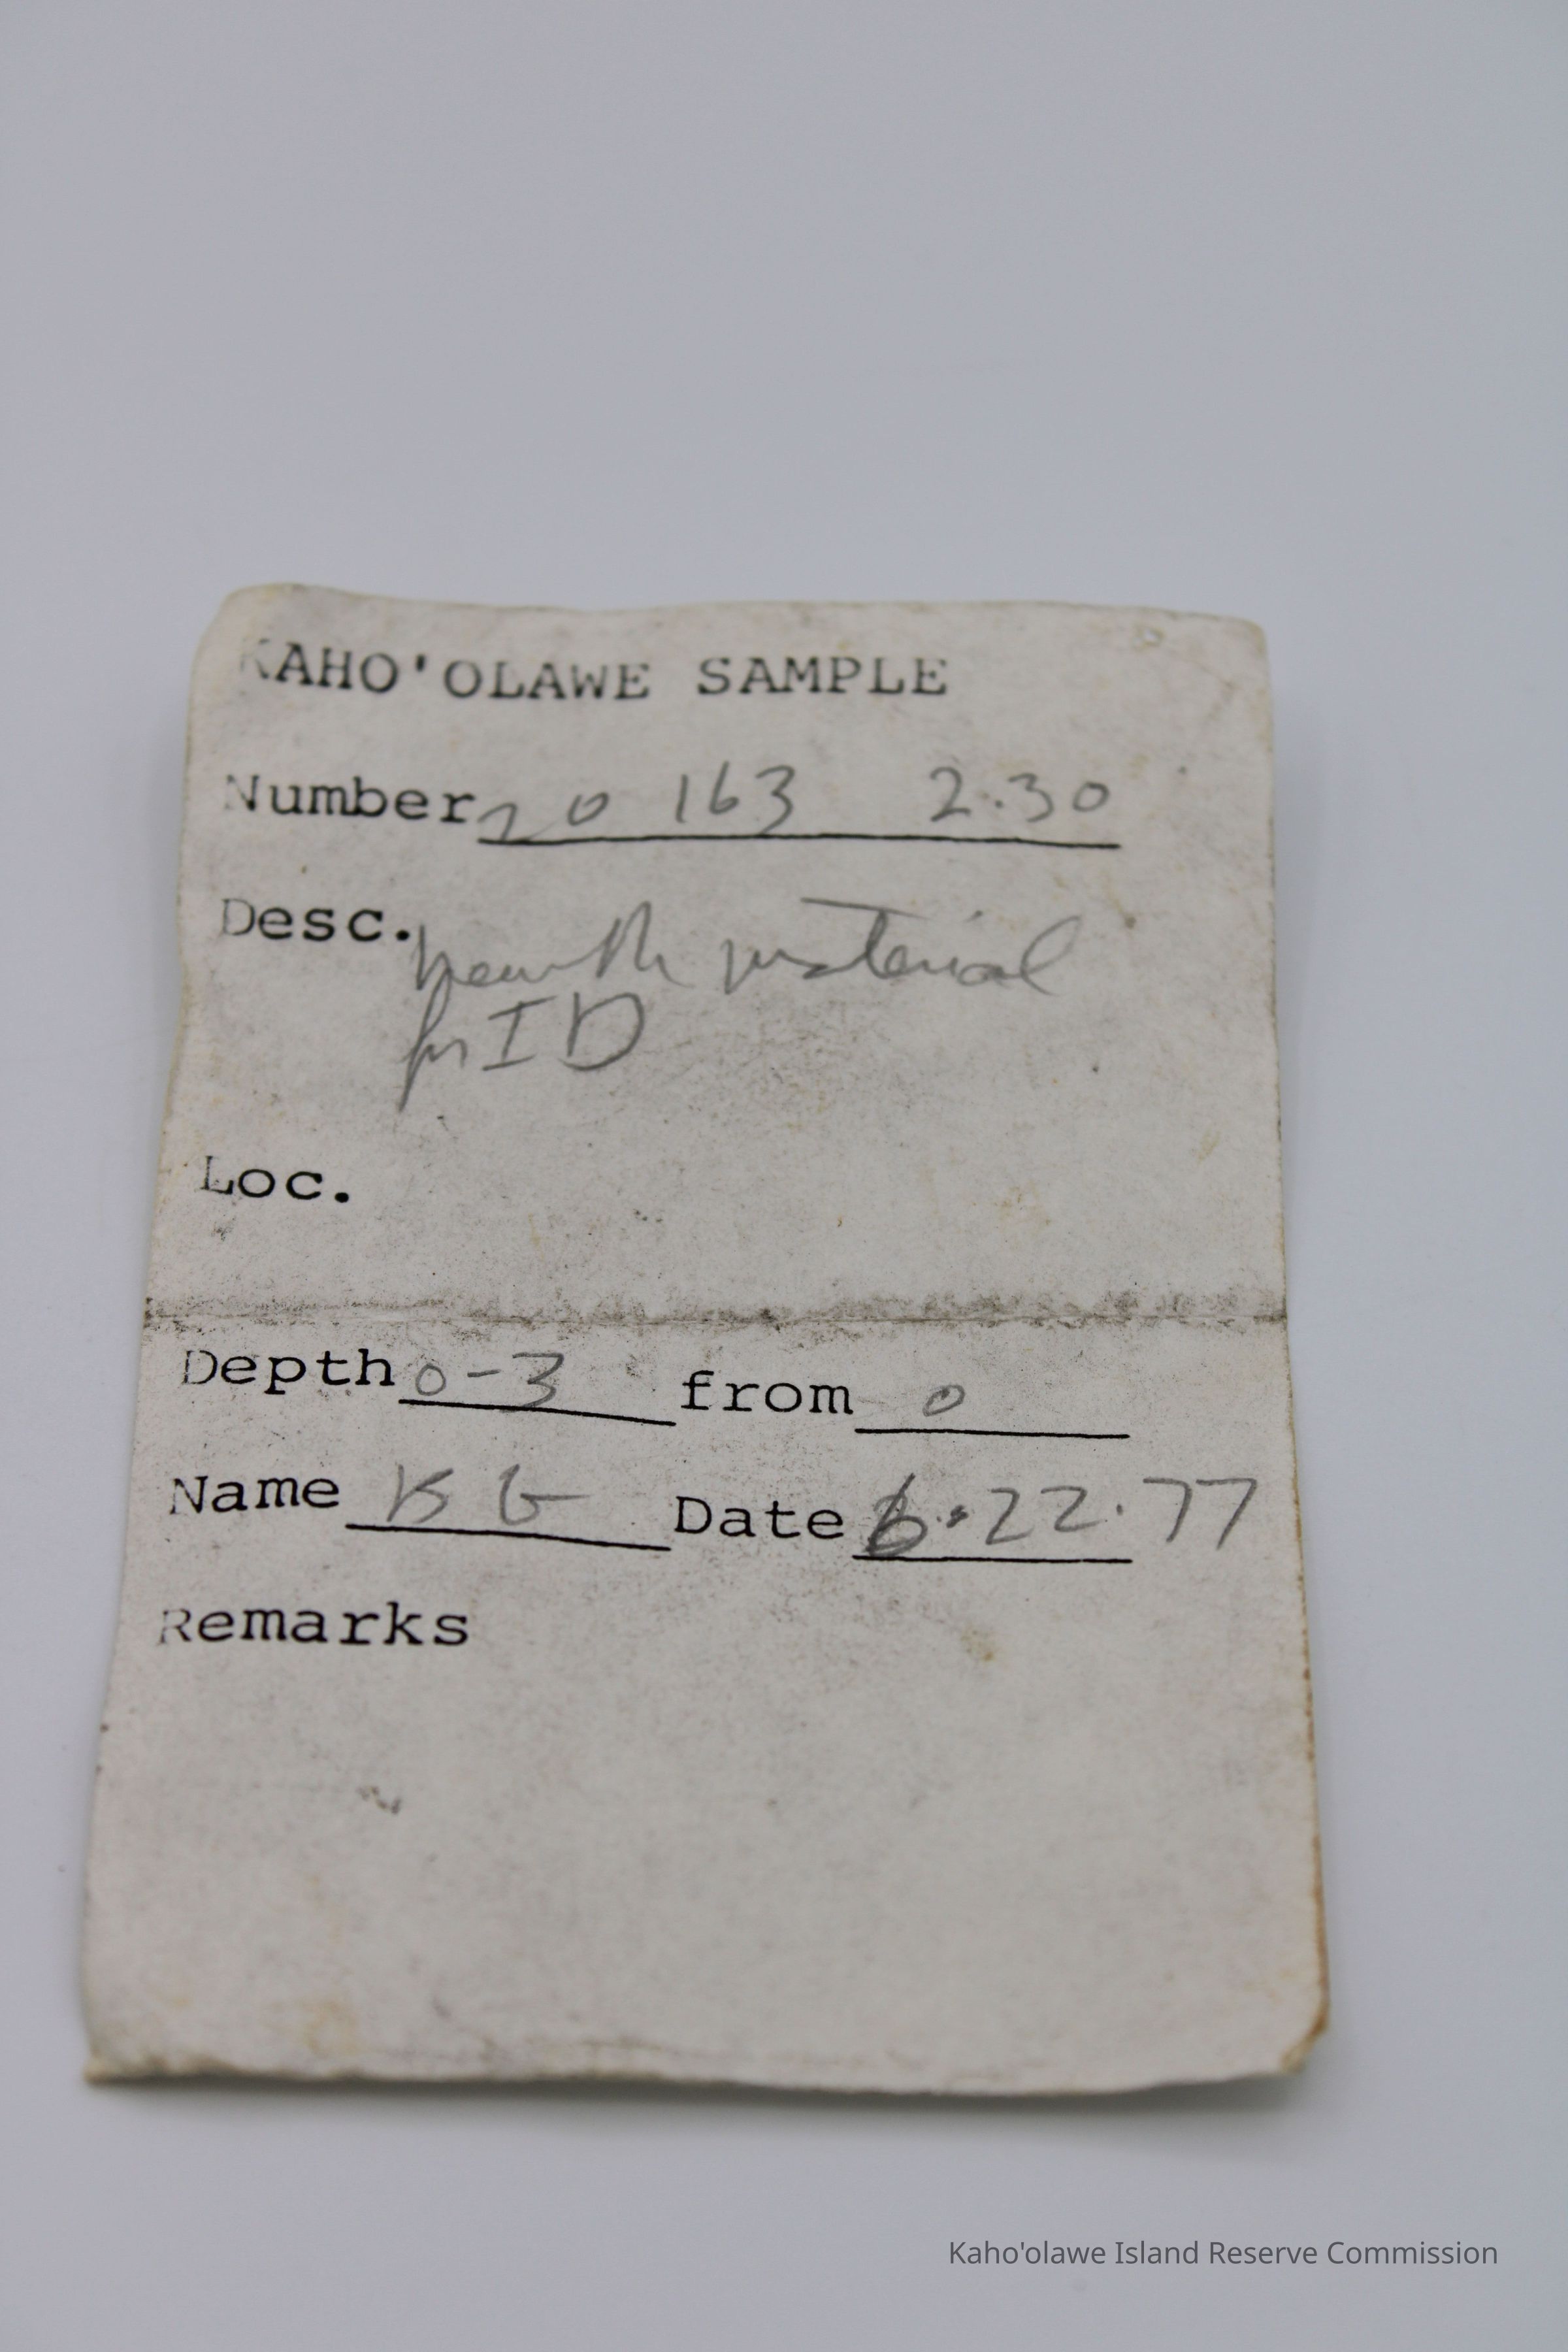 KAHO'OLAWE SAMPLE
Number 20 163 2.30
Desc. hearth material
for ID
Loc.
Depth 0-3 from 0
Name KG Date 6.22.77
Remarks
Kaho'olawe Island Reserve Commission